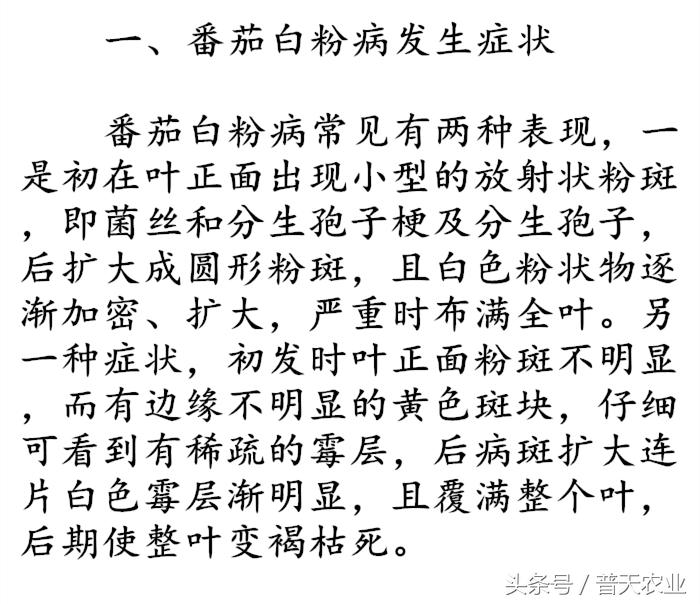 一、番茄白粉病发生症状
番茄白粉病常见有两种表现，一
是初在叶正面出现小型的放射状粉斑
，即菌丝和分生孢子梗及分生孢子，
后扩大成圆形粉斑，且白色粉状物逐
渐加密、扩大，严重时布满全叶。另
一种症状，初发时叶正面粉斑不明显
，而有边缘不明显的黄色斑块，仔细
可看到有稀疏的霉层，后病斑扩大连
片白色霉层渐明显，且覆满整个叶，
后期使整叶变褐枯死。
头条号 / 普天农业